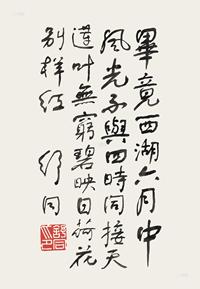 畢竟西湖六月中
風光不與四時同接天
蓮叶無窮碧映日荷花
别样红 舒同